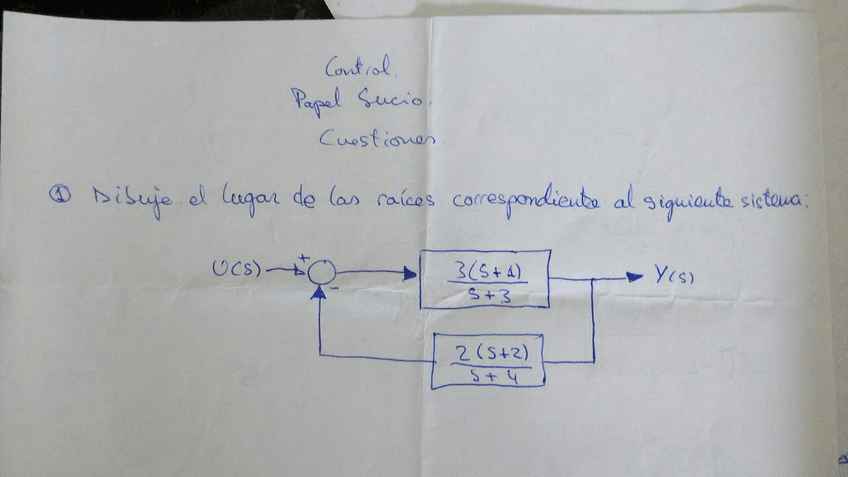 Control.
Papel Sucio.
Cuestiones.
① Dibuje el lugar de las raíces correspondiente al siguiente sistema:
U(s) + - 3(s+1) / s+3 Y(s)
2(s+2) / s+4